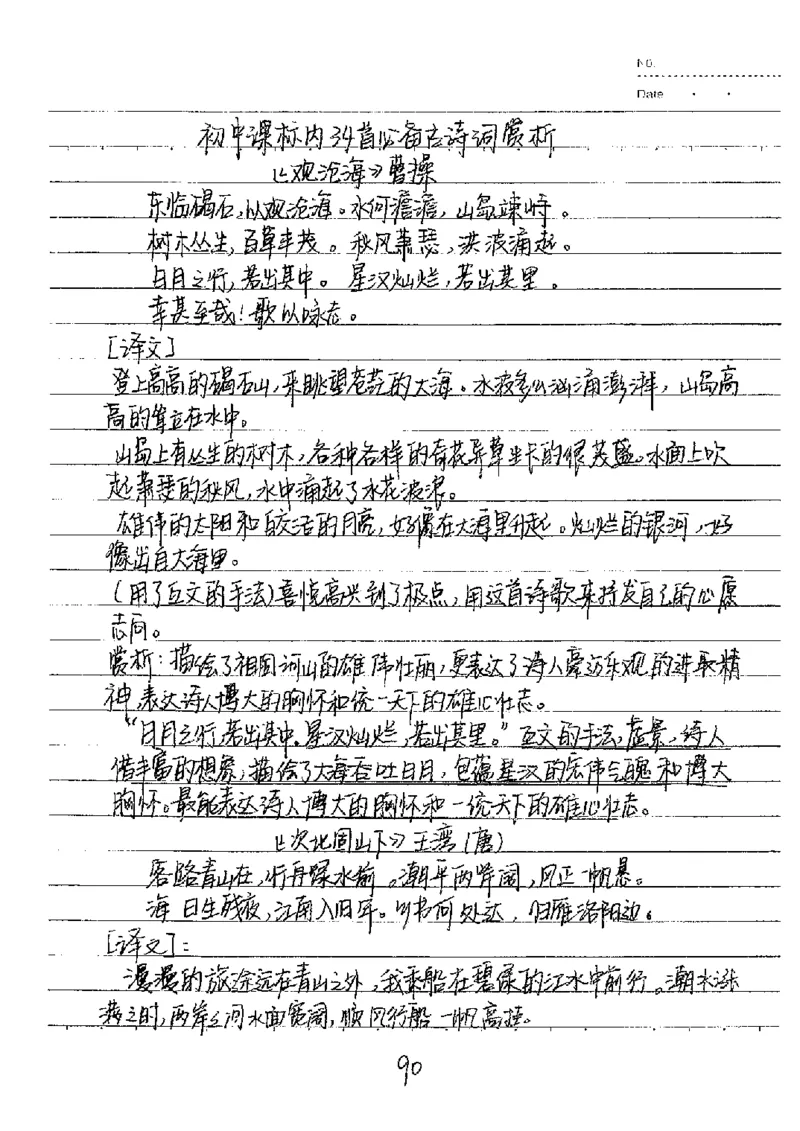 No.
Date
初中课标内34首必备古诗词赏析
《观沧海》曹操
东临碣石,以观沧海。水何澹澹,山岛竦峙。
树木丛生,百草丰茂。秋风萧瑟,洪波涌起。
日月之行,若出其中。星汉灿烂,若出其里。
幸甚至哉!歌以咏志。
[译文]
登上高高的碣石山,来眺望苍茫的大海。水波多么汹涌澎湃,山岛高
高的耸立在水中。
山岛上有丛生的树木,各种各样的奇花异草生长的很茂盛。水面上吹
起萧瑟的秋风,水中涌起了水花波浪。
雄伟的太阳和皎洁的月亮,好像在大海里升起。灿烂的银河,好
像出自大海里。
(用了互文的手法)喜悦高兴到了极点,用这首诗歌来抒发自己的心愿
志向。
赏析:描绘了祖国河山的雄伟壮丽,更表达了诗人豪迈乐观的进取精
神,表达诗人博大的胸怀和统一天下的雄心壮志。
“日月之行,若出其中。星汉灿烂,若出其里。”互文的手法,虚景,诗人
借丰富的想象,描绘了大海吞吐日月,包蕴星汉的宏伟气魄和博大
胸怀。最能表达诗人博大的胸怀和一统天下的雄心壮志。
《次北固山下》王湾(唐)
客路青山在,行舟绿水前。潮平两岸阔,风正一帆悬。
海日生残夜,江南入旧年。乡书何处达,归雁洛阳边。
[译文]:
漫漫的旅途远在青山之外,我乘船在碧绿的江水中前行。潮水涨
满之时,两岸之间水面宽阔,顺风行船一帆高挂。
90